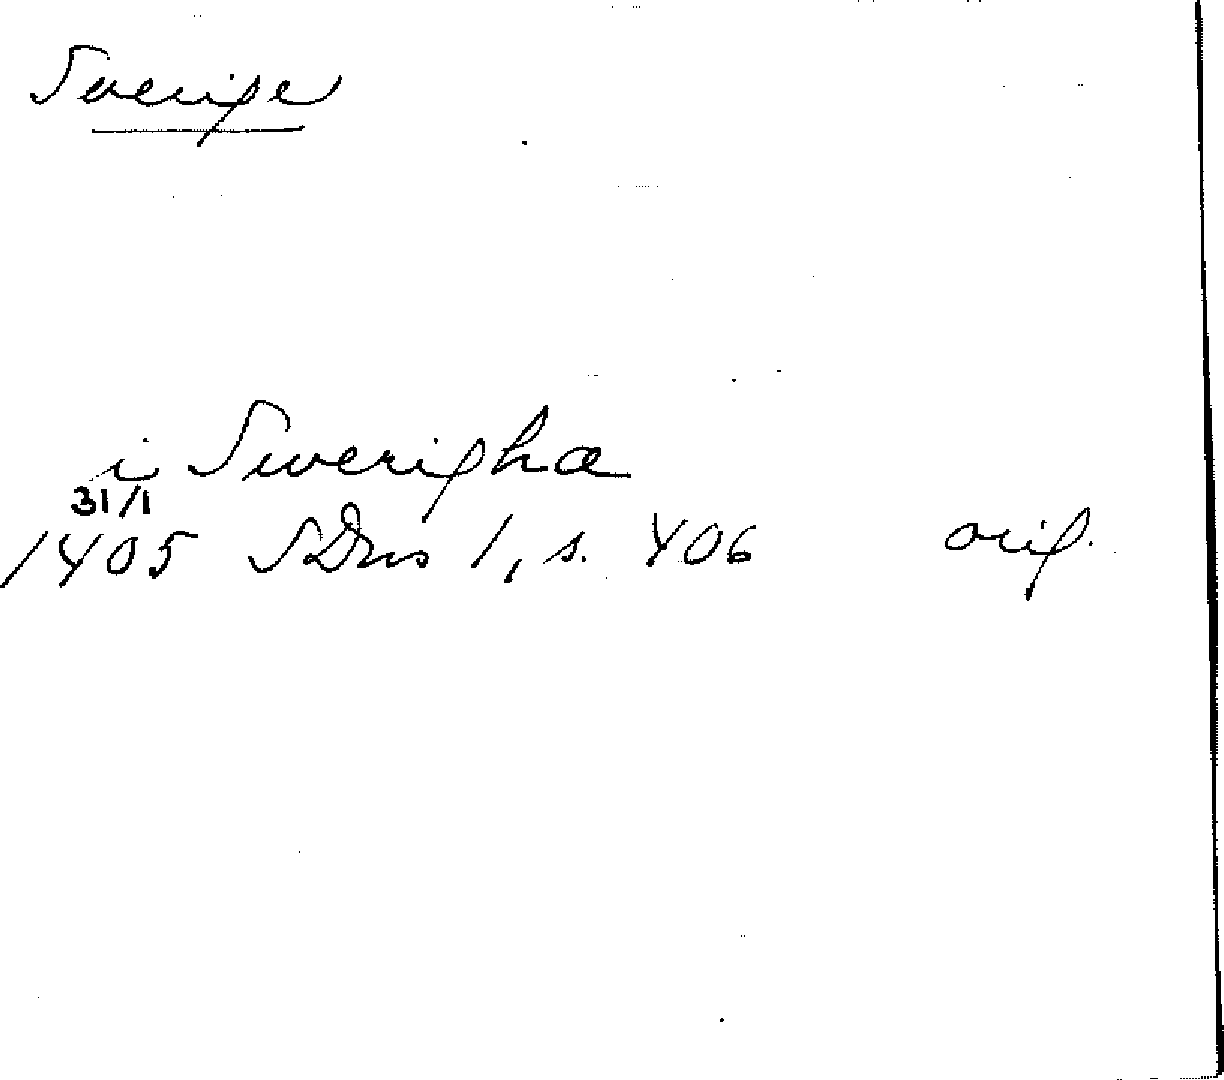 Sverige
i Swerighæ
31/1
1405 SDns 1, s. 406 orig.